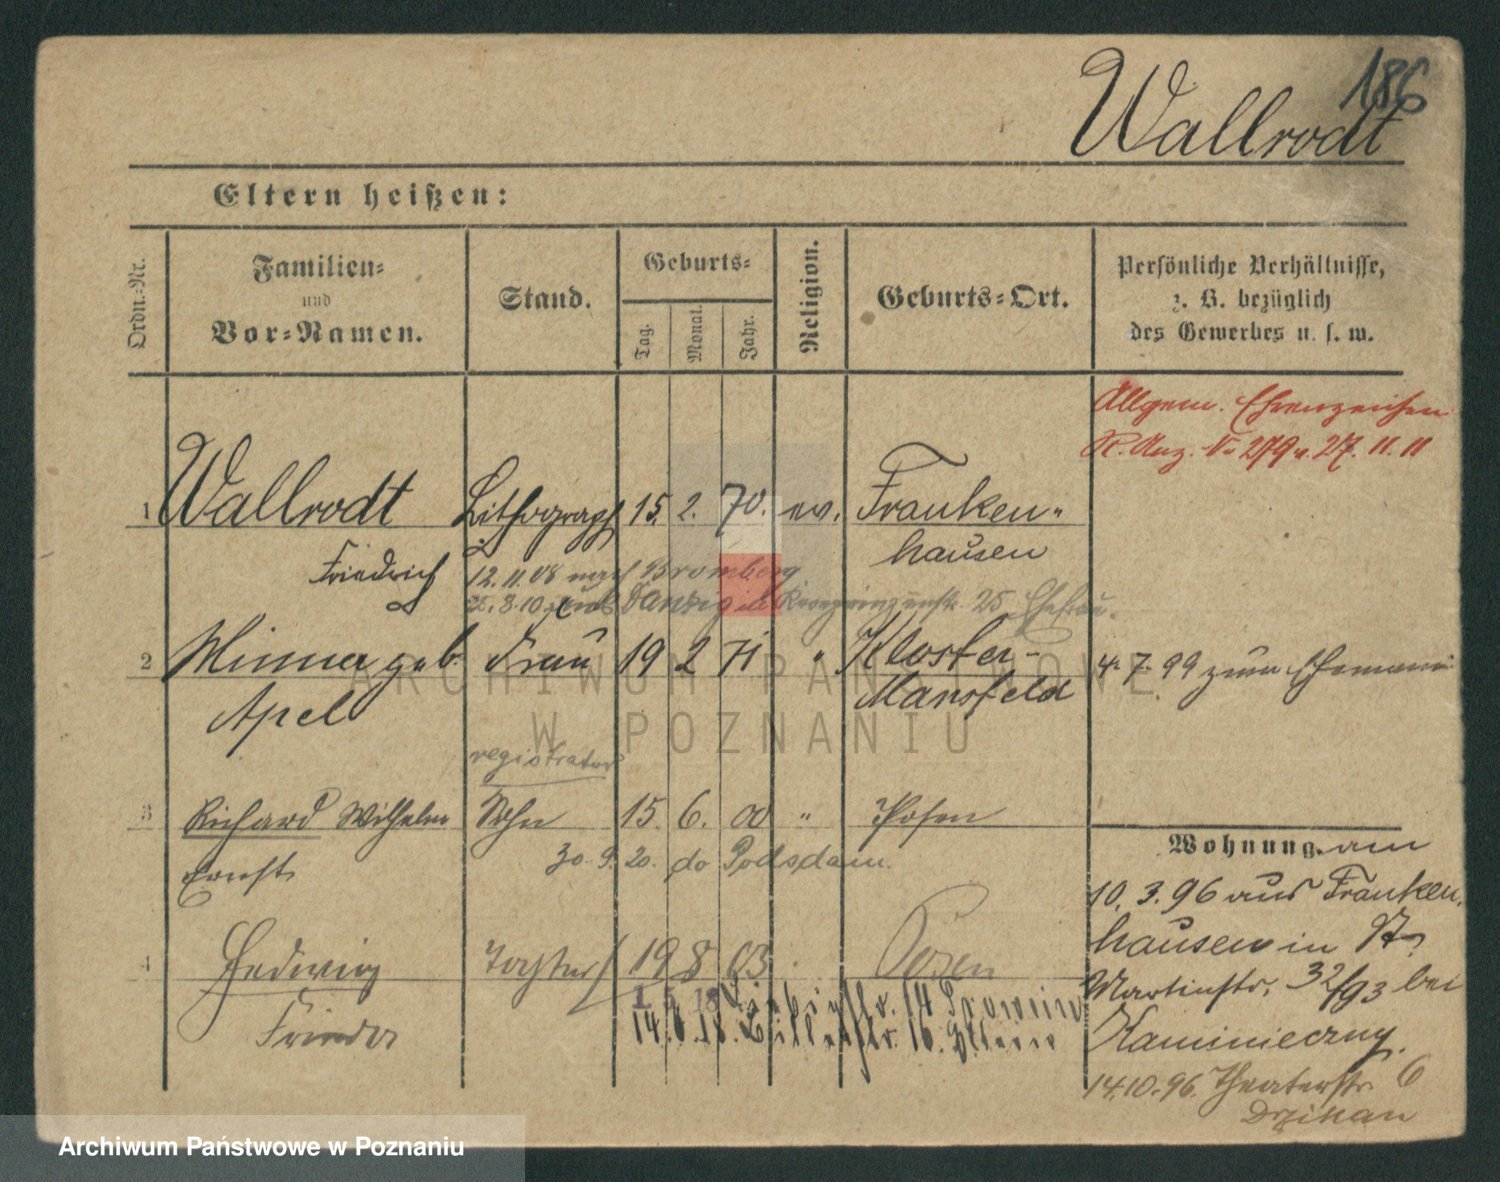 186
Wallrodt
Eltern heißen:
Ordn.-Nr.
Familien-
und
Vor-Namen.
Stand.
Geburts-
Tag.
Monat.
Jahr.
Religion.
Geburts-Ort.
Persönliche Verhältnisse,
z. B. bezüglich
des Gewerbes u. s. w.
Allgem. Ehrenzeichen
R. Anz. No 279 v. 27. 11. 11
1 Wallrodt Lithograph 15. 2. 70. ev. Franken-
hausen
Friedrich 12. 11. 08 nach Bromberg
8. 10 Danzig 25 Ehefrau.
2 Minna geb. Frau 19 2 71 " Kloster- 4. 7. 99 zum Ehemann
Apel Mansfeld
registrator
3 Richard Wilhelm Sohn 15. 6. 00 " Posen
Ernst 30. 9. 20. do Potsdam.
Wohnung. am
10. 3. 96 aus Franken-
hausen in St.
Martinstr. 32/93 bei
Kaminieczny.
14.10.96. Theaterstr. 6
Dzikan
4 Hedwig Tochter 19 8 03 Posen
Frieda
14
14. 6. 18. 16.
ARCHIWUM PAŃSTWOWE
W POZNANIU
Archiwum Państwowe w Poznaniu